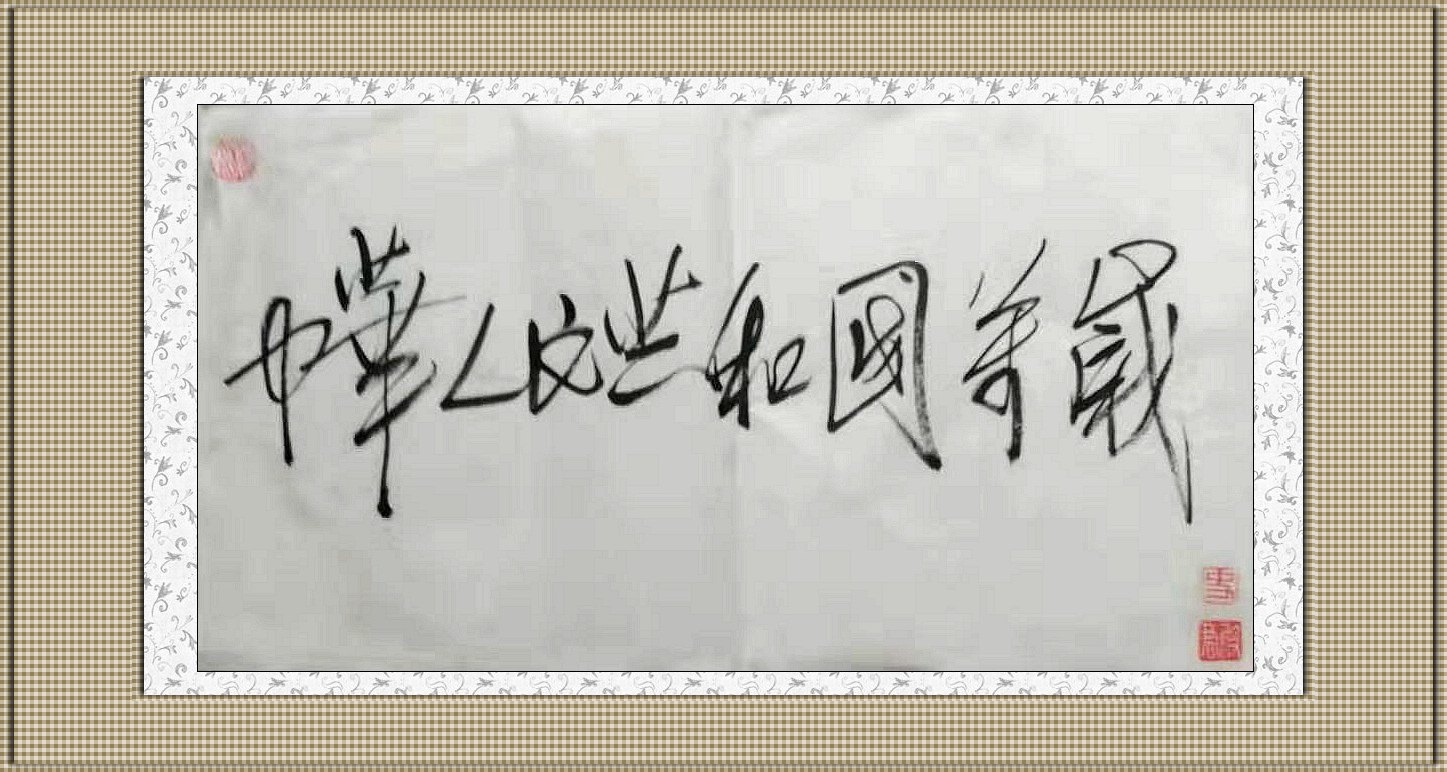 中華人民共和國萬歲